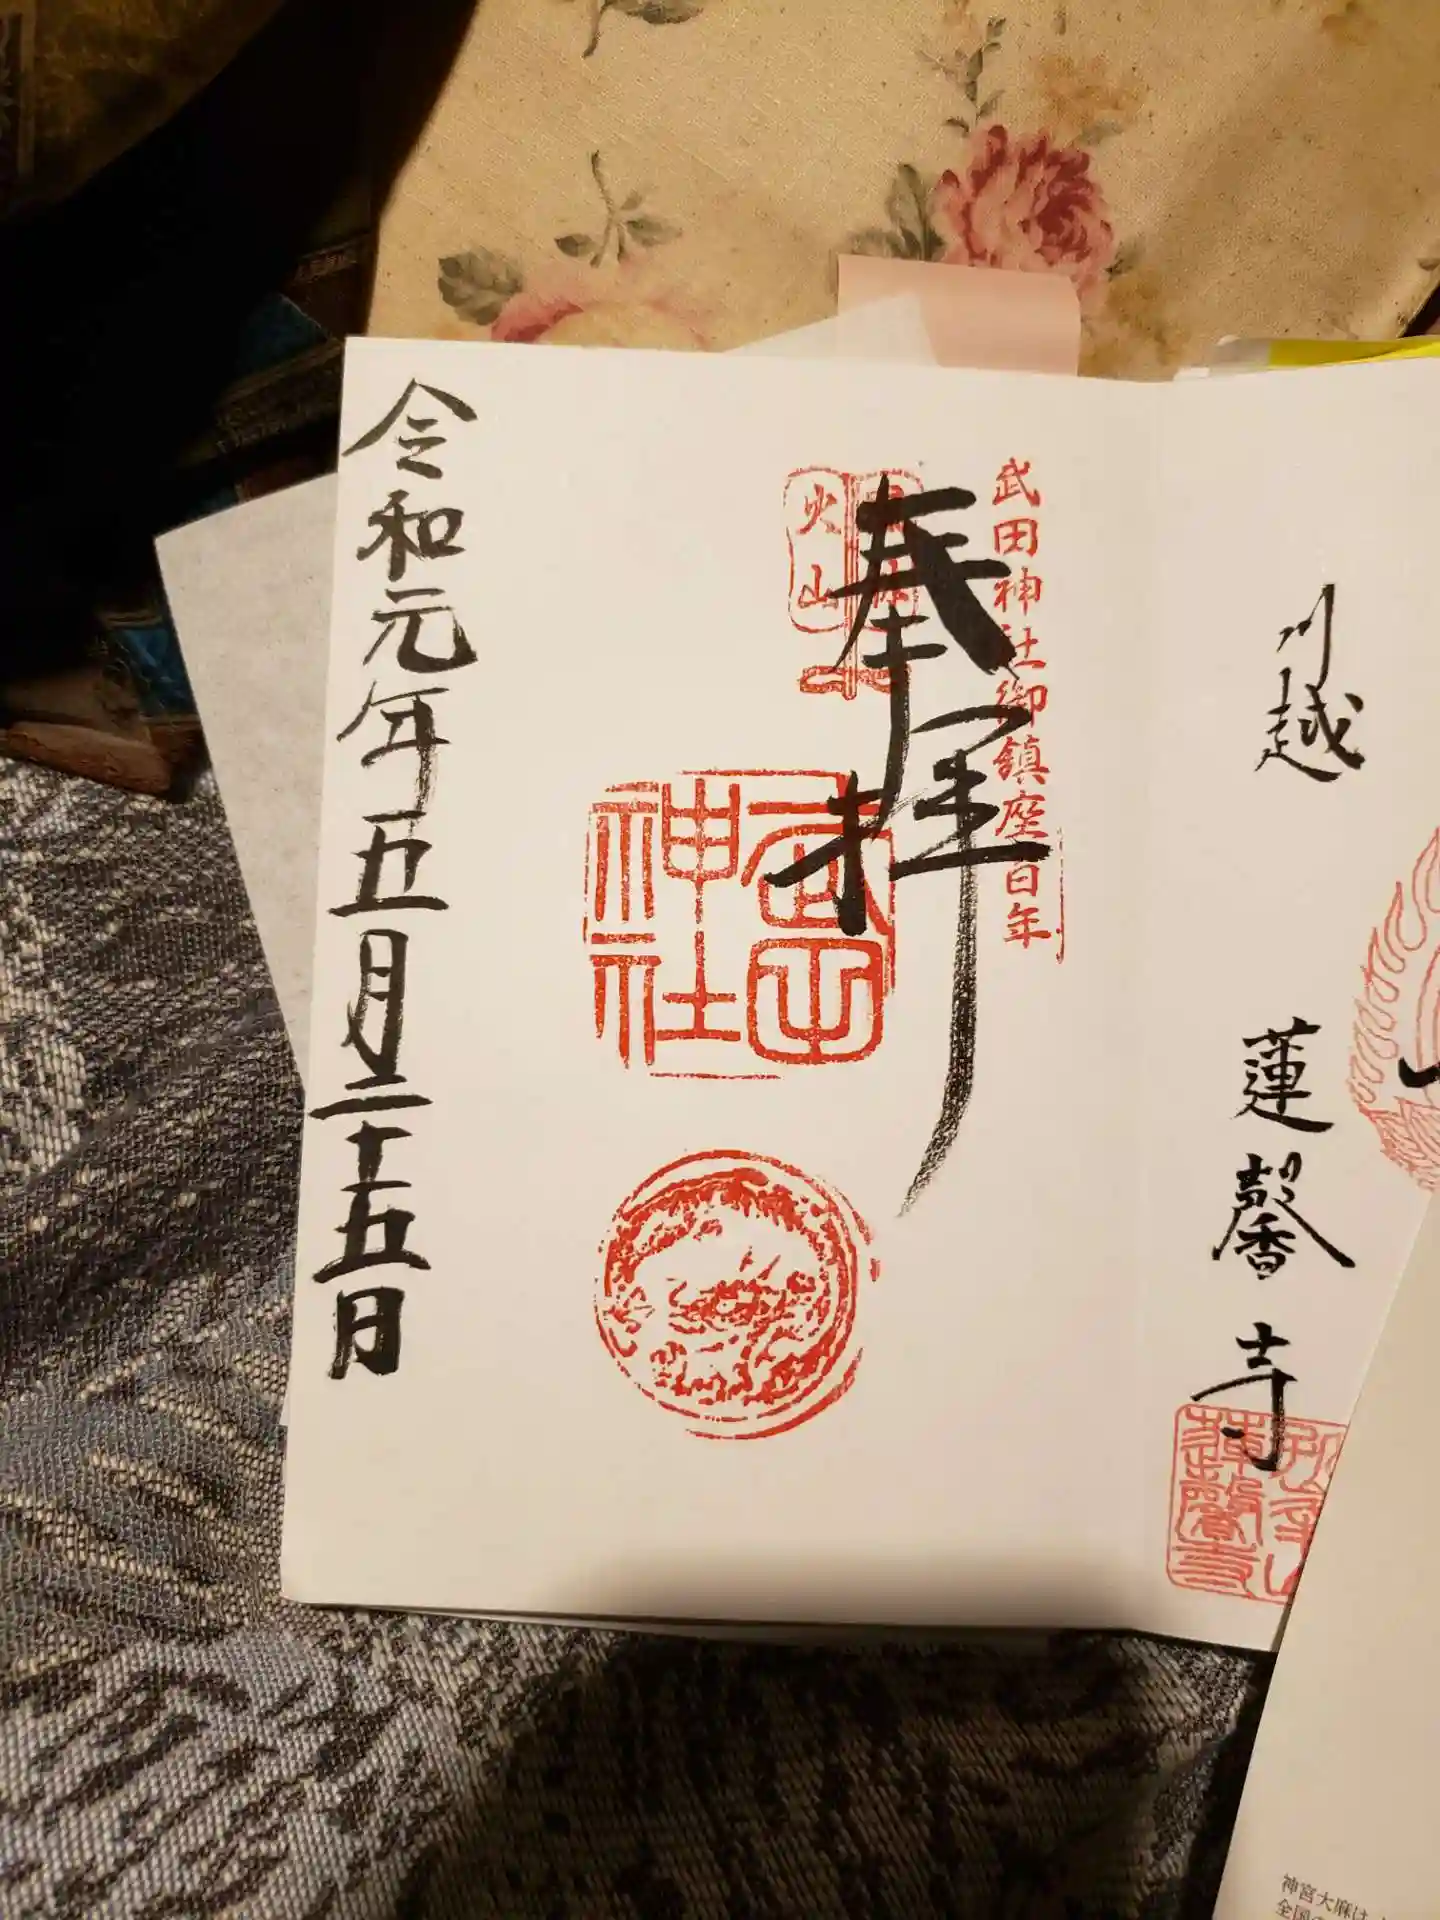 川越
蓮馨寺
蓮馨寺
武田神社御鎮座百年
奉拝
林
火山
武田
神社
令和元年五月二十五日
神宮大麻は
全国の